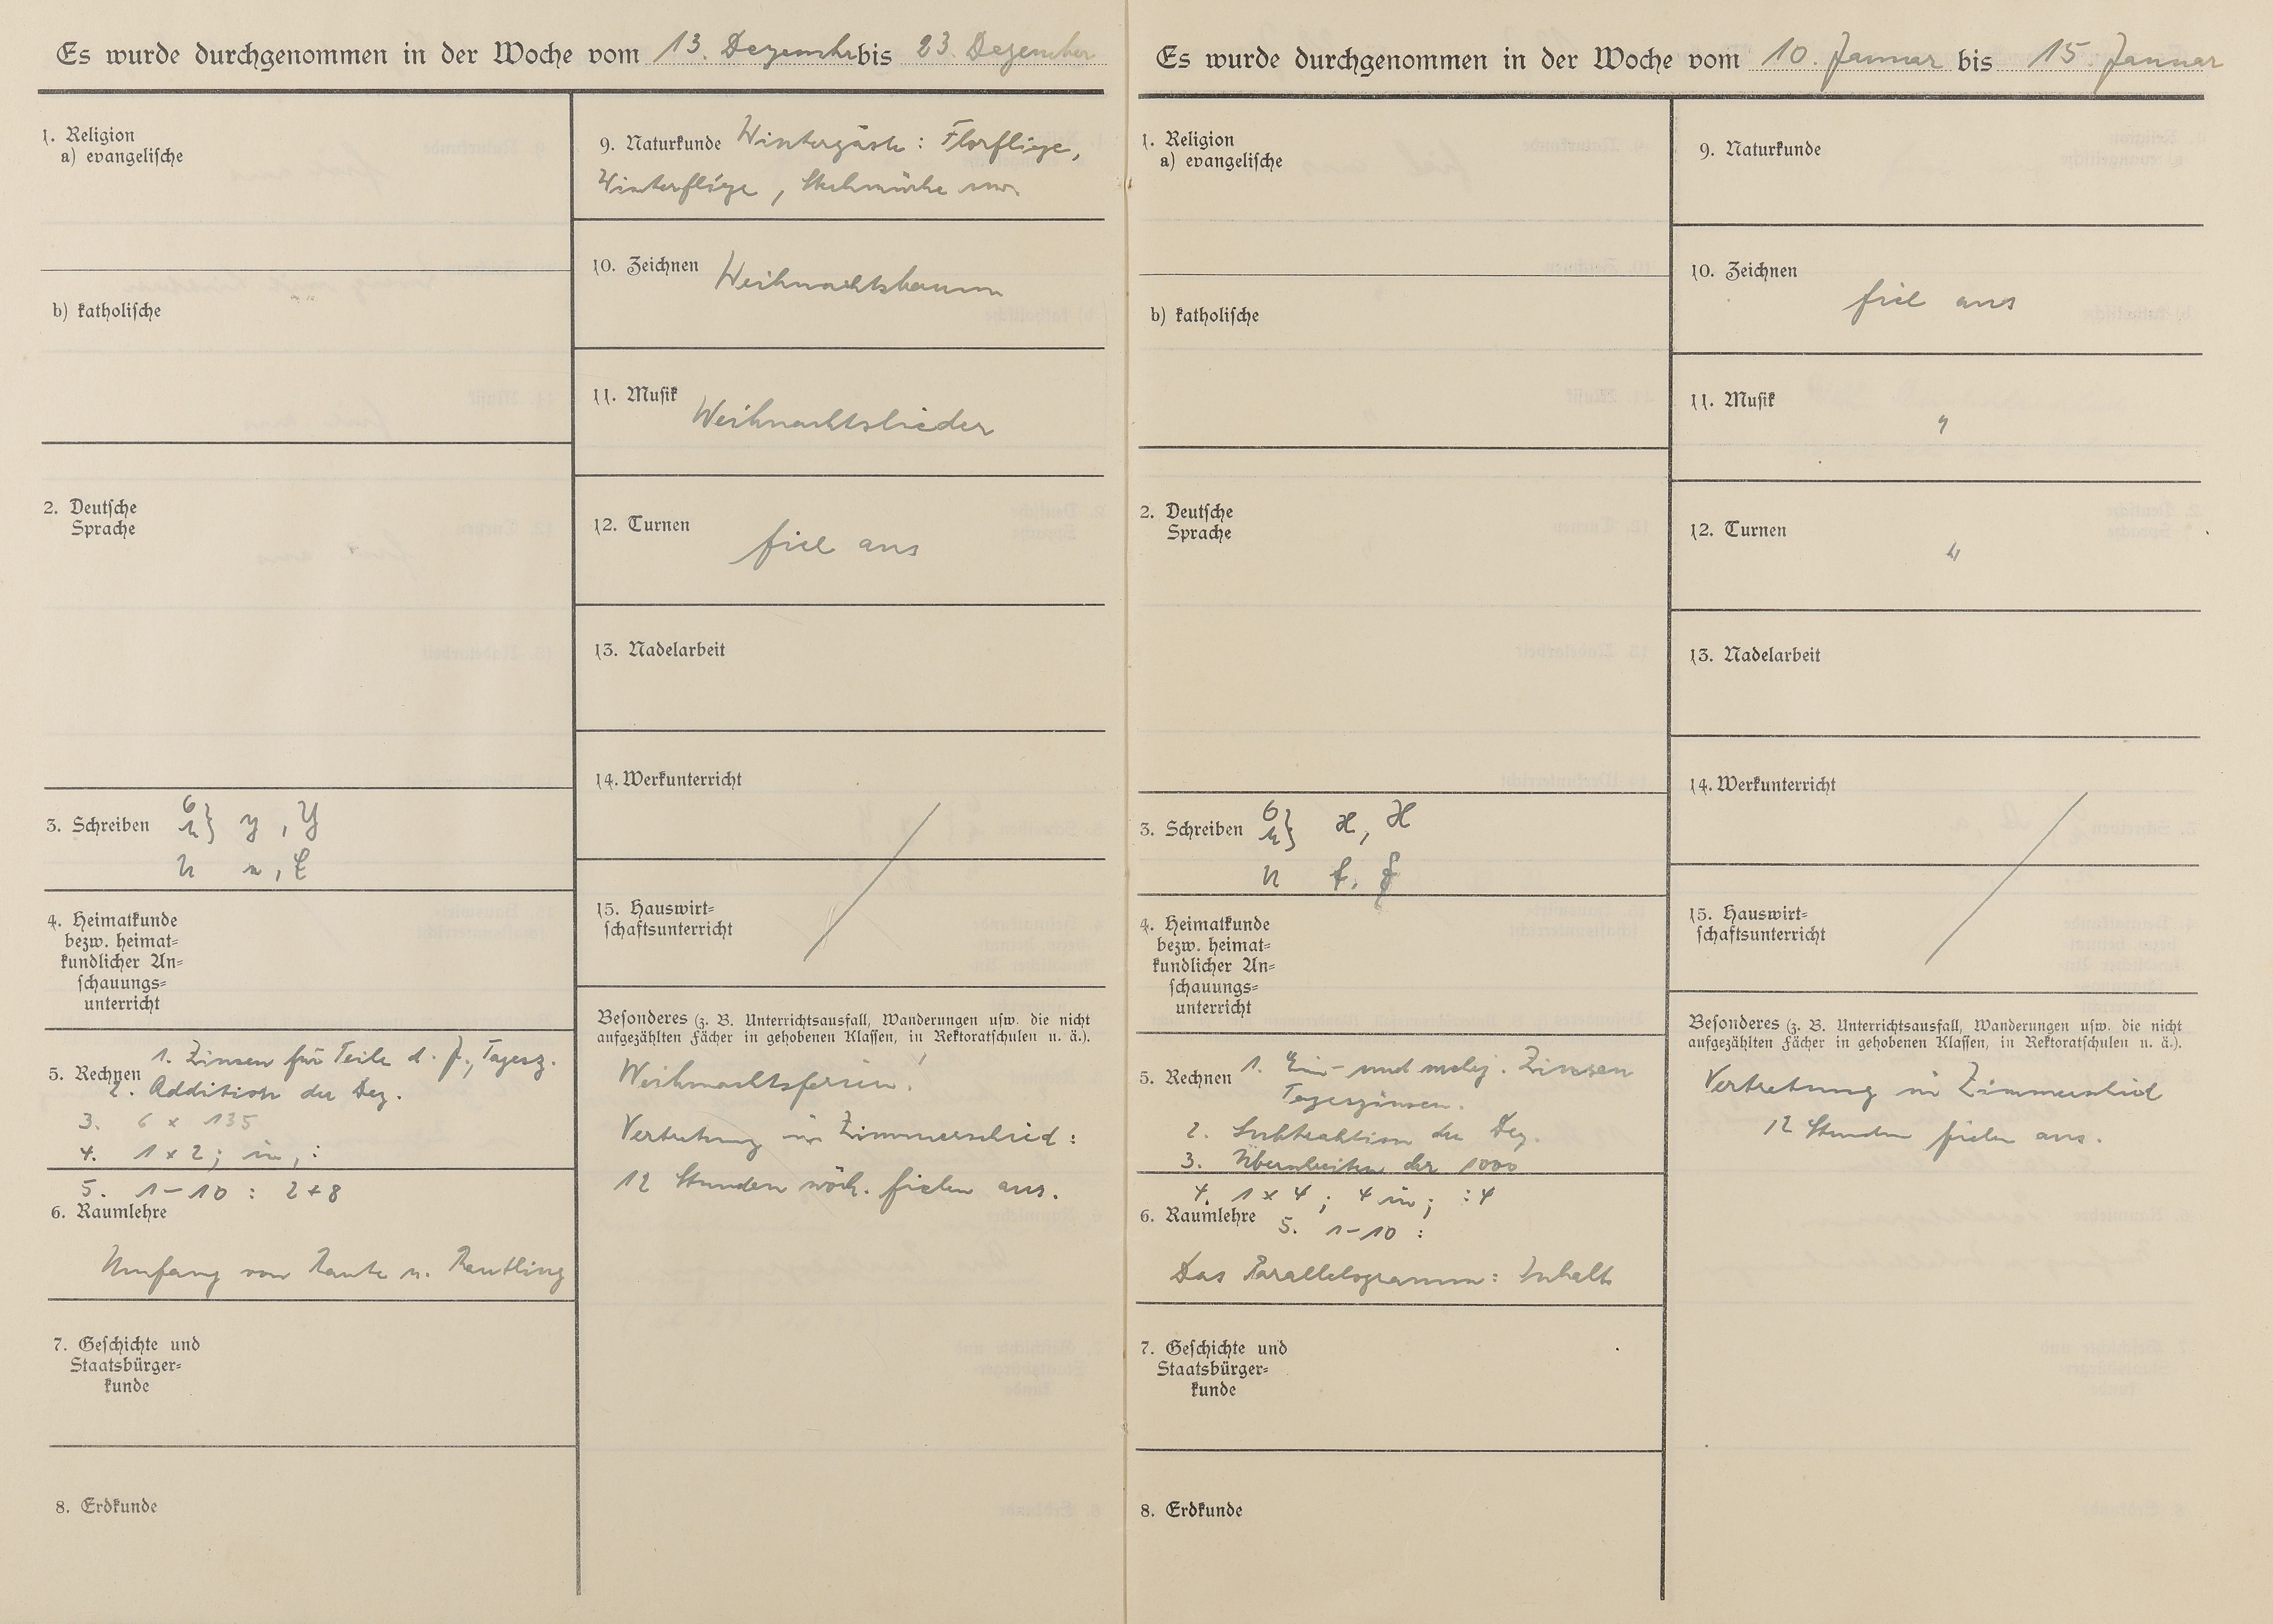 Es wurde durchgenommen in der Woche vom 13. Dezember bis 23. Dezember
1. Religion
a) evangelische
b) katholische
2. Deutsche
Sprache
3. Schreiben y, Y
4. Heimatkunde
bezw. heimat-
kundlicher An-
schauungs-
unterricht
1. Zinsen für Teile d. J., Tagesz.
5. Rechnen
2. Addition der Dez.
3. 6 x 135
4. 1 x 2; in, :
5. 1–10 : 2+8
6. Raumlehre
Umfang von Raute u. Rautling
7. Geschichte und
Staatsbürger-
kunde
8. Erdkunde
9. Naturkunde Wintergäste: Florfliege,
Winterfliege, Stechmücke usw.
10. Zeichnen Weihnachtsbaum
11. Musik Weihnachtslieder
12. Turnen fiel aus
13. Nadelarbeit
14. Werkunterricht
15. Hauswirt-
schaftsunterricht
Besonderes (z. B. Unterrichtsausfall, Wanderungen usw. die nicht
aufgezählten Fächer in gehobenen Klassen, in Rektoratschulen u. ä.).
Weihnachtsferien!
Vertretung in Zimmerschied:
12 Stunden wöch. fielen aus.
Es wurde durchgenommen in der Woche vom 10. Januar bis 15. Januar
1. Religion
a) evangelische
b) katholische
2. Deutsche
Sprache
3. Schreiben
4. Heimatkunde
bezw. heimat-
kundlicher An-
schauungs-
unterricht
5. Rechnen 1. Ein- und mehrj. Zinsen
Tageszinsen.
2. Subtraktion der Dez.
3. Überschreiten der 1000
4. 1 x 4; 4 in; :4
6. Raumlehre 5. 1–10 :
Das Parallelogramm: Inhalt
7. Geschichte und
Staatsbürger-
kunde
8. Erdkunde
9. Naturkunde
10. Zeichnen
fiel aus
11. Musik "
12. Turnen "
13. Nadelarbeit
14. Werkunterricht
15. Hauswirt-
schaftsunterricht
Besonderes (z. B. Unterrichtsausfall, Wanderungen usw. die nicht
aufgezählten Fächer in gehobenen Klassen, in Rektoratschulen u. ä.).
Vertretung in Zimmerschied
12 Stunden fielen aus.